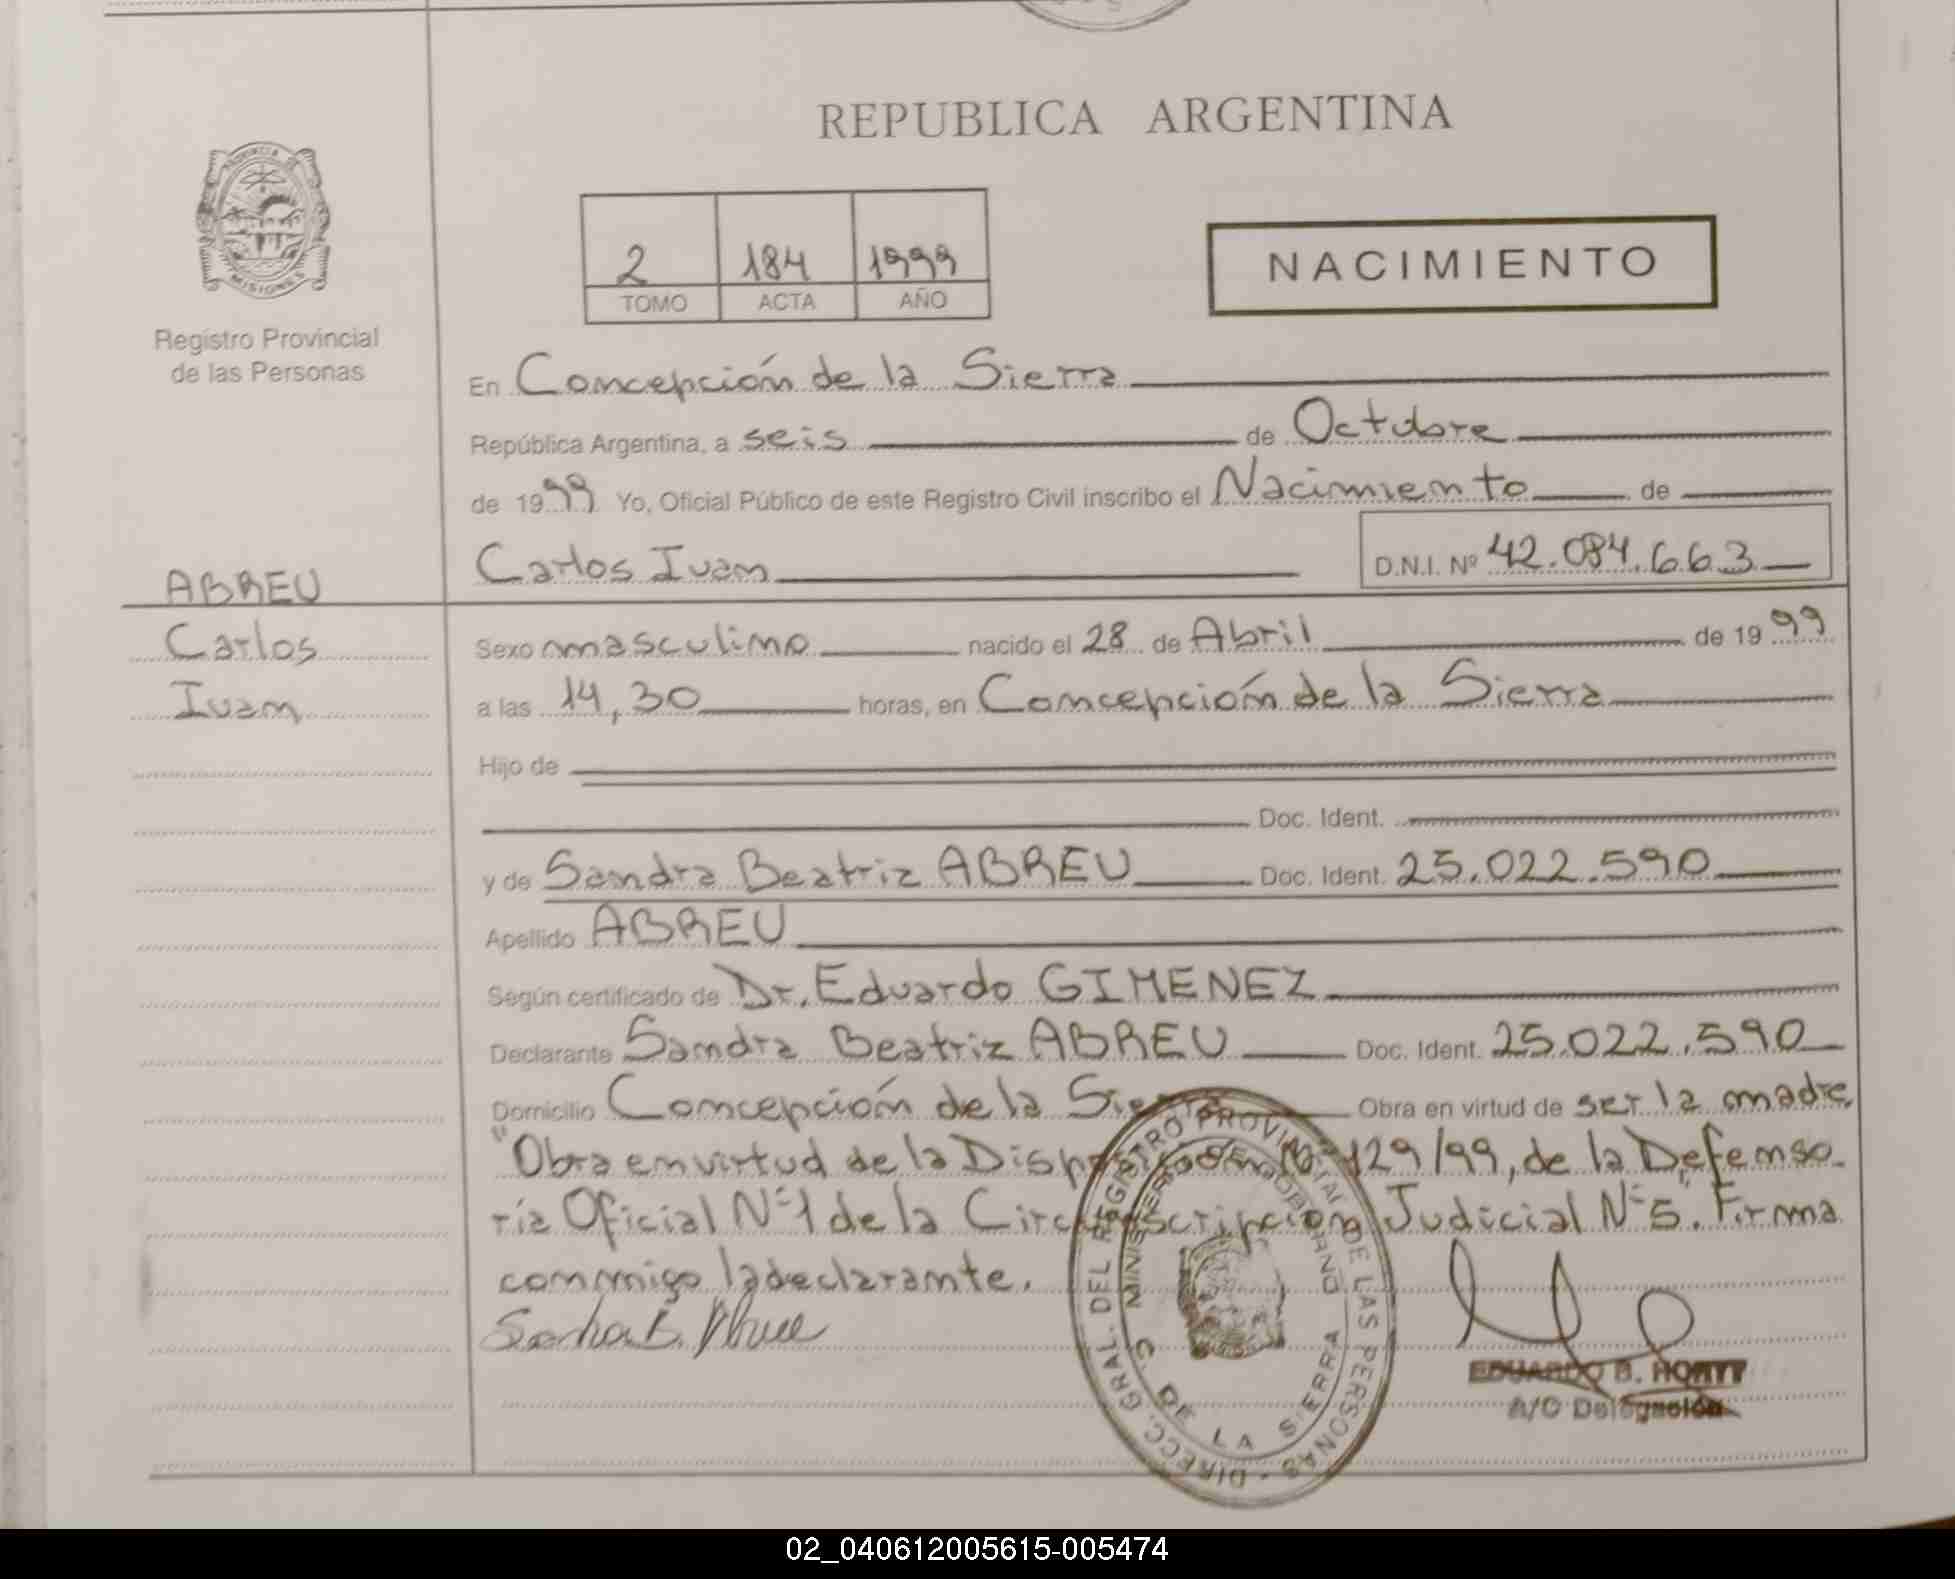 REPUBLICA ARGENTINA
PROVINCIA DE
MISIONES
Registro Provincial
de las Personas
2 184 1999
TOMO ACTA AÑO
NACIMIENTO
En Concepción de la Sierra
República Argentina, a seis de Octubre
de 1999 Yo, Oficial Público de este Registro Civil inscribo el Nacimiento de
Carlos Ivan D.N.I. Nº 42.084.663
ABREU
Carlos
Ivan
Sexo masculino nacido el 28 de Abril de 1999
a las 14,30 horas, en Concepción de la Sierra
Hijo de
Doc. Ident.
y de Sandra Beatriz ABREU Doc. Ident. 25.022.590
Apellido ABREU
Según certificado de Dr. Eduardo GIMENEZ
Declarante Sandra Beatriz ABREU Doc. Ident. 25.022.590
Domicilio Concepción de la Sierra Obra en virtud de ser la madre.
"Obra en virtud de la Disposición Nº 129/99, de la Defenso-
ría Oficial Nº 1 de la Circunscripción Judicial Nº 5". Firma
conmigo la declarante.
DIRECC. GRAL. DEL REGISTRO PROVINCIAL DE LAS PERSONAS
MINISTERIO DE GOBIERNO
C. DE LA SIERRA
EDUARDO B.
A/C Delegación
02_040612005615-005474